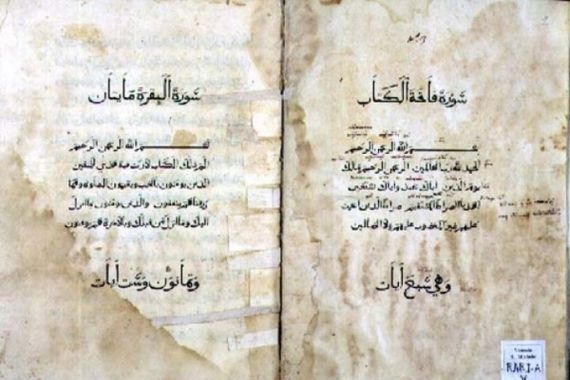 سورة فاتحة الكتاب
بسم الله الرحمن الرحيم
الحمد لله رب العالمين الرحمن الرحيم مالك
يوم الدين اياك نعبد واياك نستعين
اهدنا الصراط المستقيم صراط الذين انعمت
عليهم غير المغضوب عليهم ولا الضالين
وهي سبع آيات
RARI-A
V
سورة البقرة مايتان
بسم الله الرحمن الرحيم
الم ذلك الكتاب لا ريب فيه هدى للمتقين
الذين يومنون بالغيب ويقيمون الصلوة ومما
رزقناهم ينفقون والذين يومنون بما انزل
اليك وما انزل من قبلك وبالاخرة هم يوقنون
وثمانون وست آيات